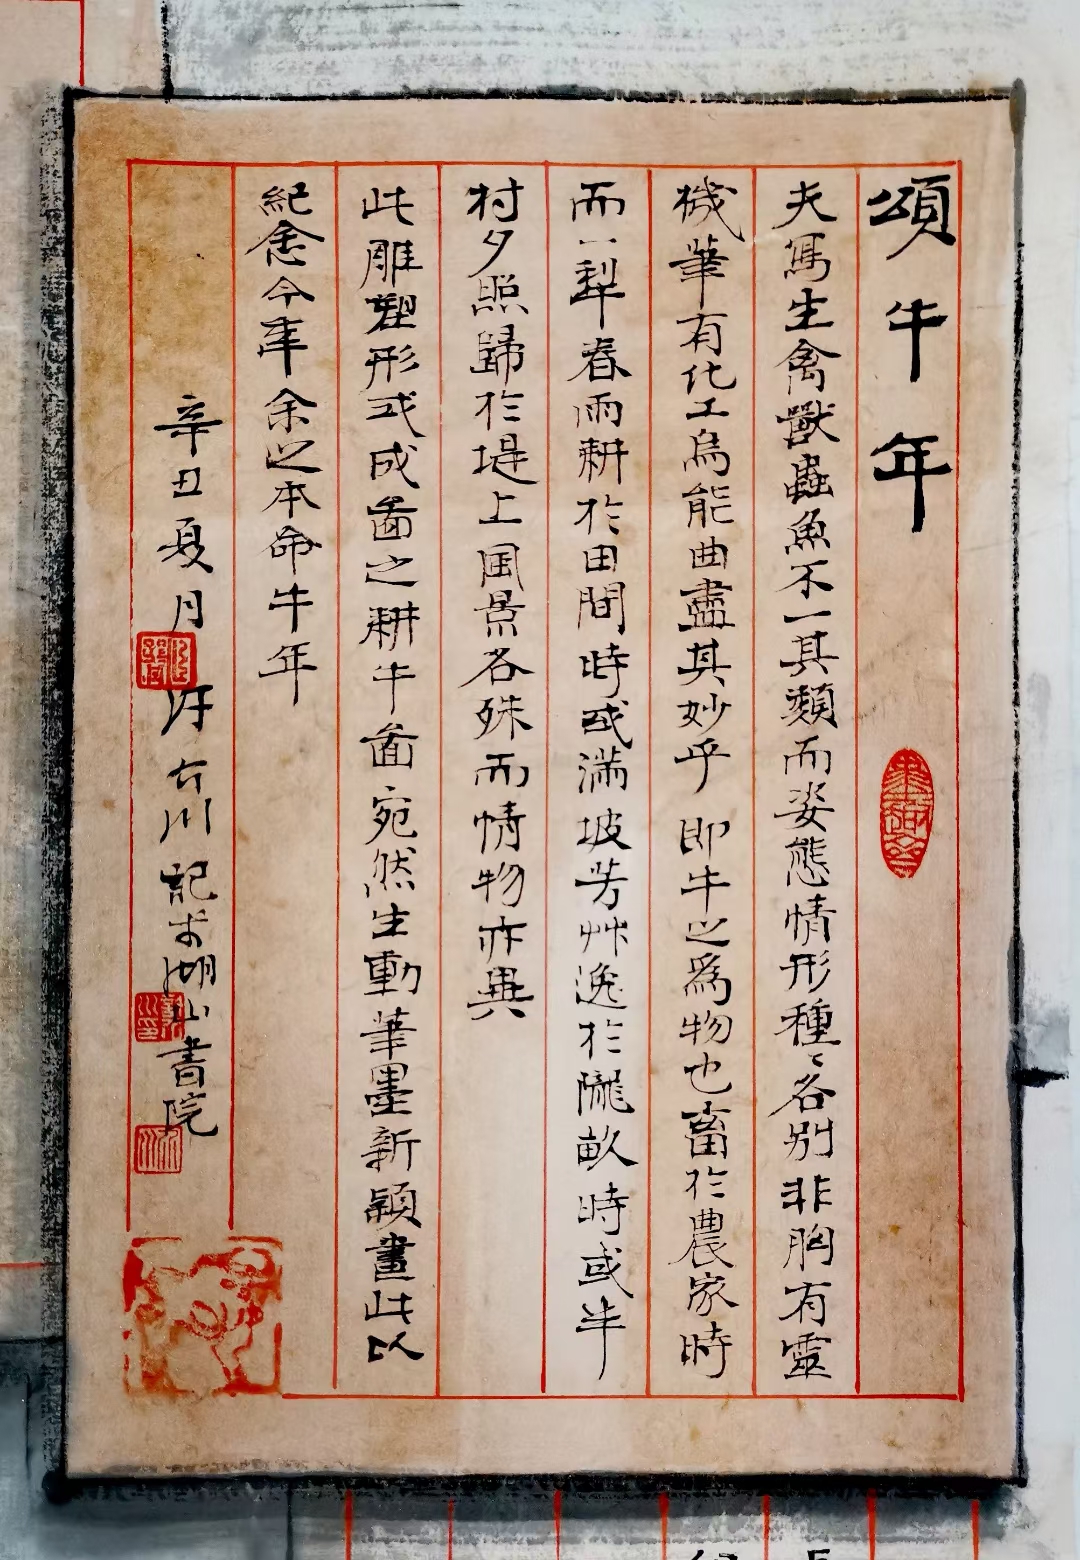 頌牛年
夫寫生禽獸蟲魚不一其類而姿態情形種〻各別非胸有靈
機筆有化工烏能曲盡其妙乎即牛之為物也畜於農家時
而一犁春雨耕於田間時或滿坡芳艸逸於隴畝時或半
村夕照歸於堤上風景各殊而情物亦異
此雕塑形式成圖之耕牛圖宛然生動筆墨新穎畫此以
紀念今年余之本命牛年
辛丑夏月 汗古川記於湖山書院